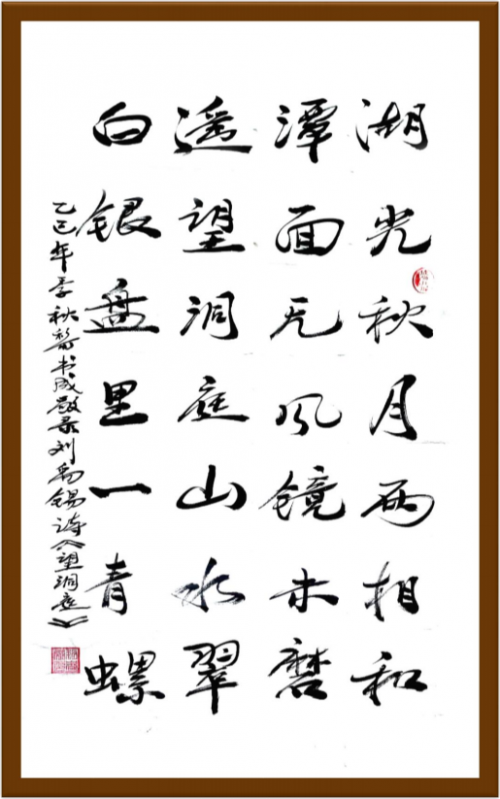 湖光秋月两相和
潭面无风镜未磨
遥望洞庭山水翠
白银盘里一青螺
乙巳年季秋书成敬录刘禹锡诗《望洞庭》